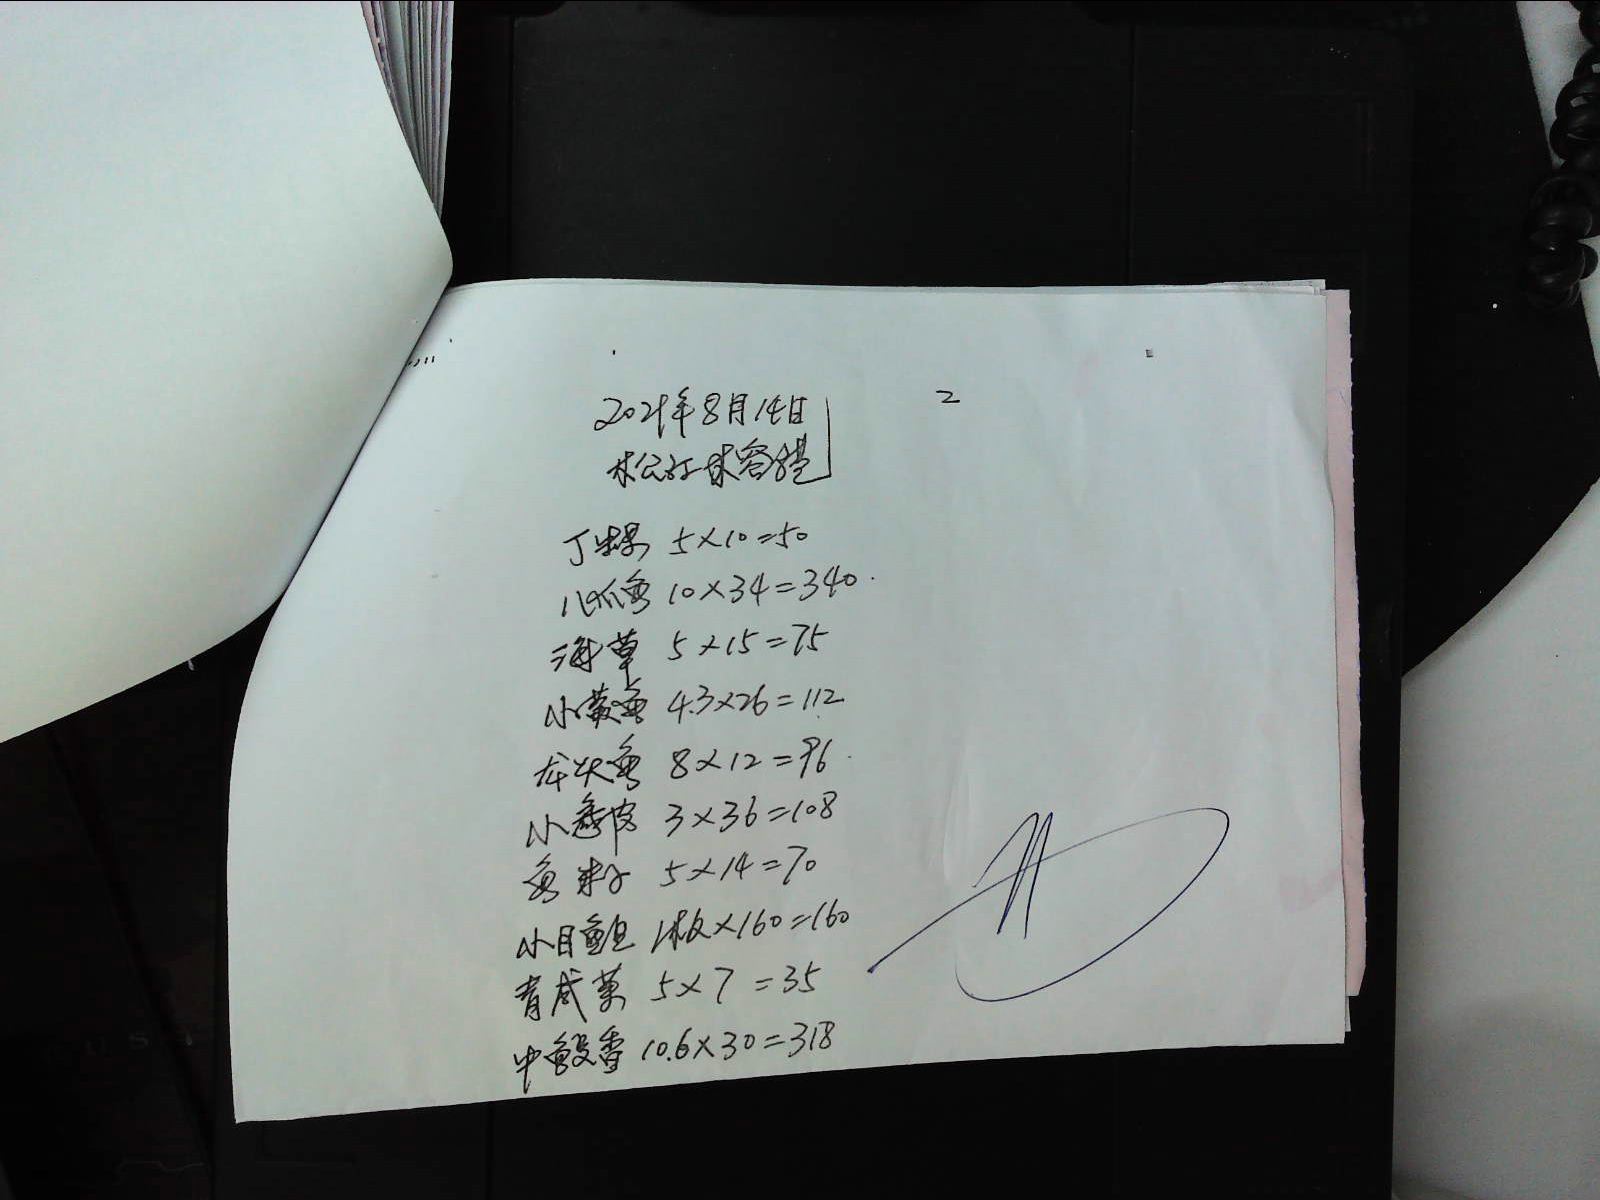 2021年8月14日
2
5×10=50
八爪鱼 10×34=340
海草 5×15=75
小黄鱼 4.3×26=112
龙头鱼 8×12=96
小 3×36=108
鱼籽 5×14=70
小目鱼 1板×160=160
青咸菜 5×7=35
中 10.6×30=318